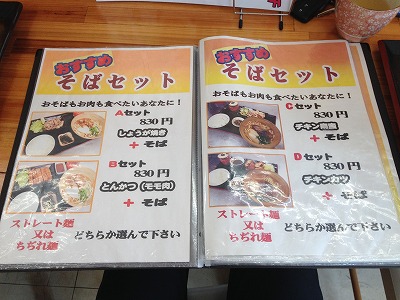 おすすめ
そばセット
おそばもお肉も食べたいあなたに！
Aセット
830円
しょうが焼き
+ そば
Bセット
830円
とんかつ（モモ肉）
+ そば
ストレート麺
又は
ちぢれ麺
どちらか選んで下さい
おすすめ
そばセット
おそばもお肉も食べたいあなたに！
Cセット
830円
チキン南蛮
+ そば
Dセット
830円
チキンカツ
+ そば
ストレート麺
又は
ちぢれ麺
どちらか選んで下さい